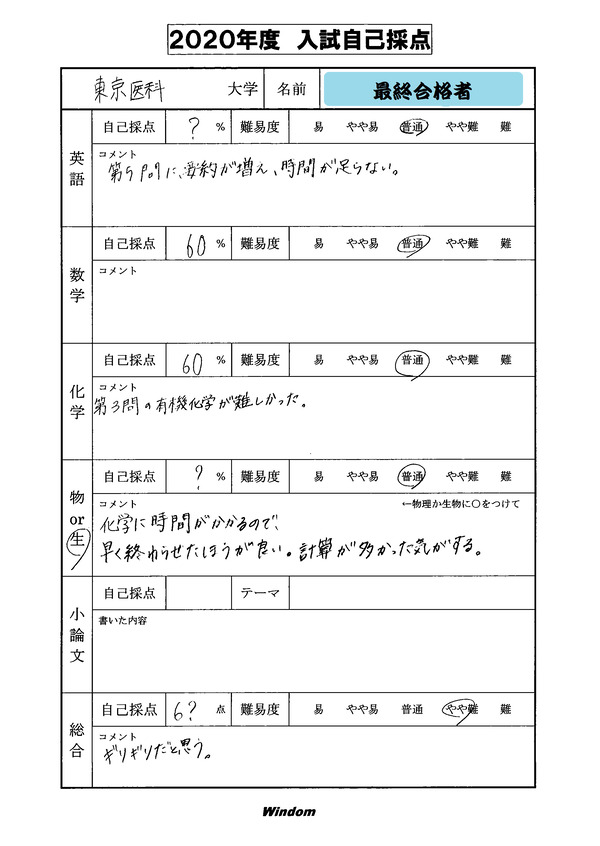 2020年度 入試自己採点
東京医科 大学 名前 最終合格者
英語 自己採点 ? % 難易度 易 やや易 普通 やや難 難
コメント
第5問に、要約が増え、時間が足らない。
数学 自己採点 60 % 難易度 易 やや易 普通 やや難 難
コメント
化学 自己採点 60 % 難易度 易 やや易 普通 やや難 難
コメント
第3問の有機化学が難しかった。
物or生 自己採点 ? % 難易度 易 やや易 普通 やや難 難
コメント ←物理か生物に○をつけて
化学に時間がかかるので、
早く終わらせたほうが良い。計算が多かった気がする。
小論文 自己採点 テーマ
書いた内容
総合 自己採点 6? 点 難易度 易 やや易 普通 やや難 難
コメント
ギリギリだと思う。
Windom